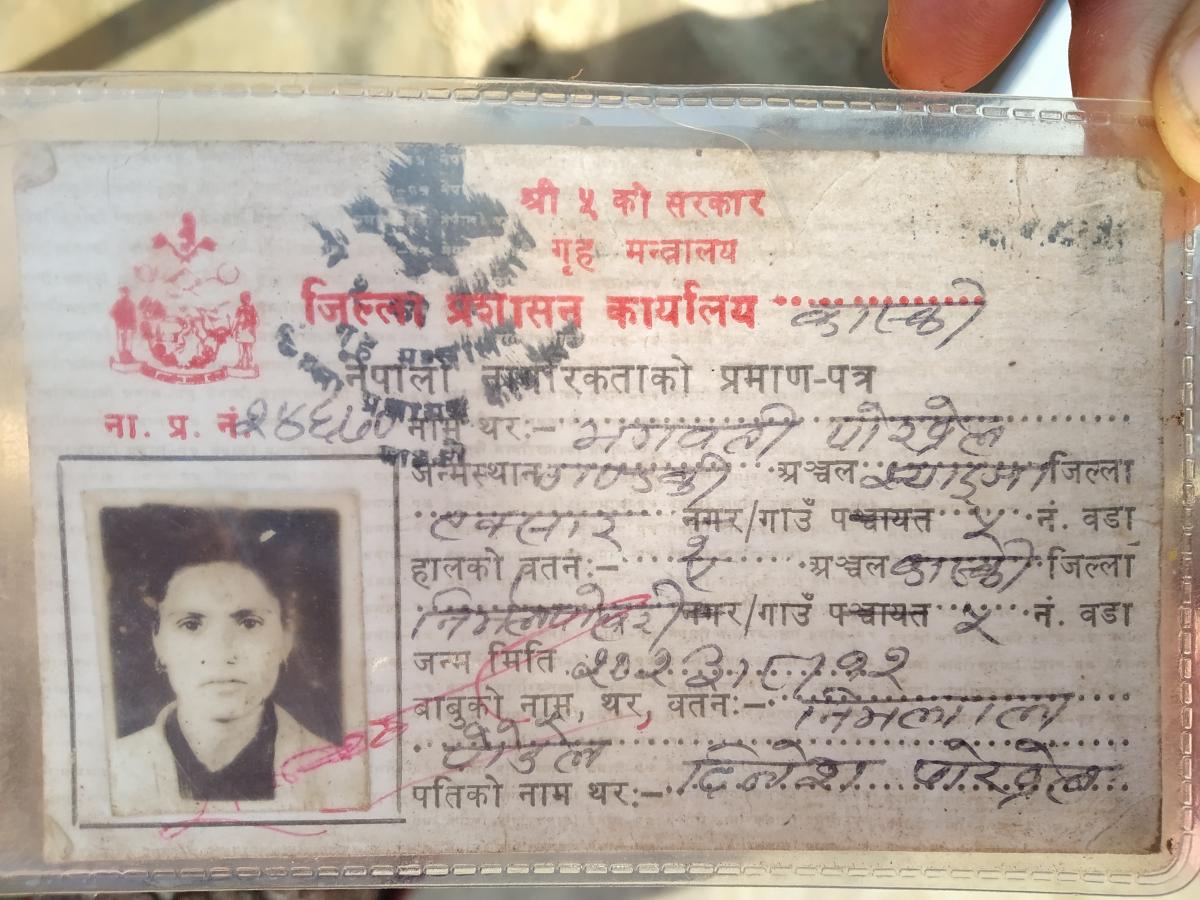 श्री ५ को सरकार
गृह मन्त्रालय
जिल्ला प्रशासन कार्यालय कास्की
नेपाली नागरिकताको प्रमाण-पत्र
ना. प्र. नं. नाम थर:- भगवती पोख्रेल
जन्मस्थान गण्डकी अञ्चल स्याङ्जा जिल्ला
नगर/गाउँ पञ्चायत ५ नं. वडा
हालको वतन:- अञ्चल कास्की जिल्ला
निर्मलपोखरी नगर/गाउँ पञ्चायत ५ नं. वडा
जन्म मिति
बाबुको नाम, थर, वतन:-
पौडेल
पतिको नाम थर:- पोख्रेल